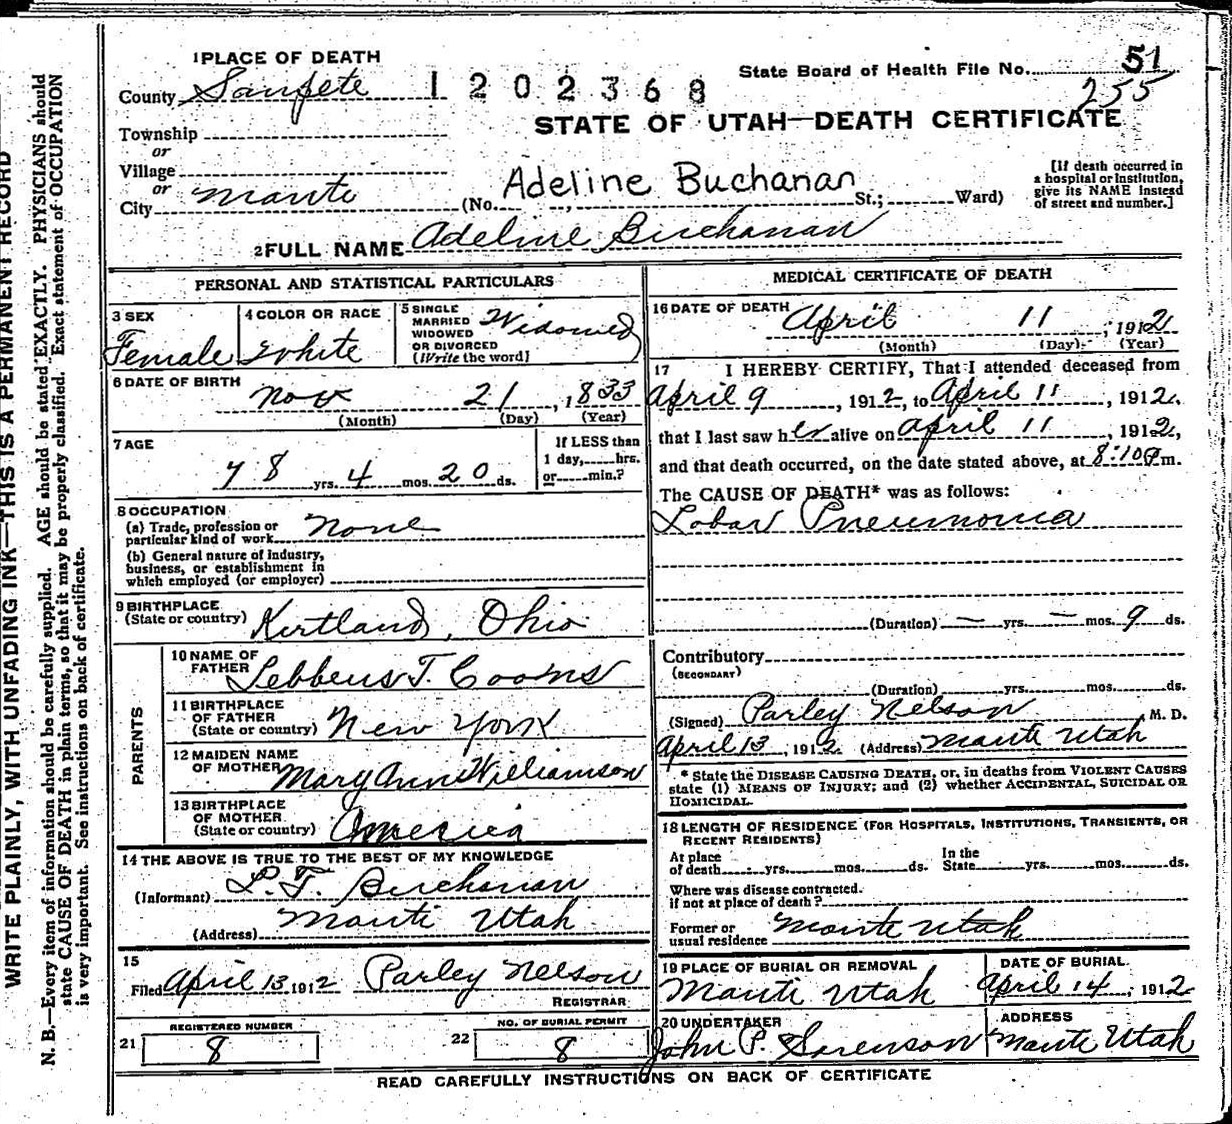 WRITE PLAINLY, WITH UNFADING INK—THIS IS A PERMANENT RECORD
N. B.—Every item of information should be carefully supplied. AGE should be stated EXACTLY. PHYSICIANS should
state CAUSE OF DEATH in plain terms, so that it may be properly classified. Exact statement of OCCUPATION
is very important. See instructions on back of certificate.
1 PLACE OF DEATH
County Sanpete
1202368
State Board of Health File No. 51
255
STATE OF UTAH—DEATH CERTIFICATE
Township
or
Village
or
City Manti
(No. , St.; Ward)
Adeline Buchanan
[If death occurred in
a hospital or institution,
give its NAME instead
of street and number.]
2 FULL NAME Adeline Buchanan
PERSONAL AND STATISTICAL PARTICULARS
3 SEX
Female
4 COLOR OR RACE
White
5 SINGLE
MARRIED
WIDOWED
OR DIVORCED
(Write the word)
Widowed
6 DATE OF BIRTH
Nov 21, 1833
(Month) (Day) (Year)
7 AGE
78 yrs. 4 mos. 20 ds.
If LESS than
1 day, hrs.
or min.?
8 OCCUPATION
(a) Trade, profession or
particular kind of work None
(b) General nature of industry,
business, or establishment in
which employed (or employer)
9 BIRTHPLACE
(State or country) Kirtland, Ohio
PARENTS
10 NAME OF
FATHER Lebbeus T. Coons
11 BIRTHPLACE
OF FATHER
(State or country) New York
12 MAIDEN NAME
OF MOTHER Mary Ann Williamson
13 BIRTHPLACE
OF MOTHER
(State or country) America
14 THE ABOVE IS TRUE TO THE BEST OF MY KNOWLEDGE
(Informant) L. T. Buchanan
(Address) Manti Utah
15
Filed April 13 1912 Parley Nelson
REGISTRAR
21 REGISTERED NUMBER
8
22 NO. OF BURIAL PERMIT
8
MEDICAL CERTIFICATE OF DEATH
16 DATE OF DEATH April 11, 1912
(Month) (Day) (Year)
17 I HEREBY CERTIFY, That I attended deceased from
April 9, 1912, to April 11, 1912,
that I last saw her alive on April 11, 1912,
and that death occurred, on the date stated above, at 8:10 P.m.
The CAUSE OF DEATH* was as follows:
Lobar Pneumonia
(Duration) — yrs. — mos. 9 ds.
Contributory
(SECONDARY)
(Duration) yrs. mos. ds.
(Signed) Parley Nelson, M. D.
April 13, 1912 (Address) Manti Utah
* State the DISEASE CAUSING DEATH, or, in deaths from VIOLENT CAUSES
state (1) MEANS OF INJURY; and (2) whether ACCIDENTAL, SUICIDAL OR
HOMICIDAL.
18 LENGTH OF RESIDENCE (FOR HOSPITALS, INSTITUTIONS, TRANSIENTS, OR
RECENT RESIDENTS)
At place
of death yrs. mos. ds.
In the
State yrs. mos. ds.
Where was disease contracted.
if not at place of death?
Former or
usual residence Manti Utah
19 PLACE OF BURIAL OR REMOVAL
Manti Utah
DATE OF BURIAL.
April 14, 1912
20 UNDERTAKER
John P. Sorenson
ADDRESS
Manti Utah
READ CAREFULLY INSTRUCTIONS ON BACK OF CERTIFICATE